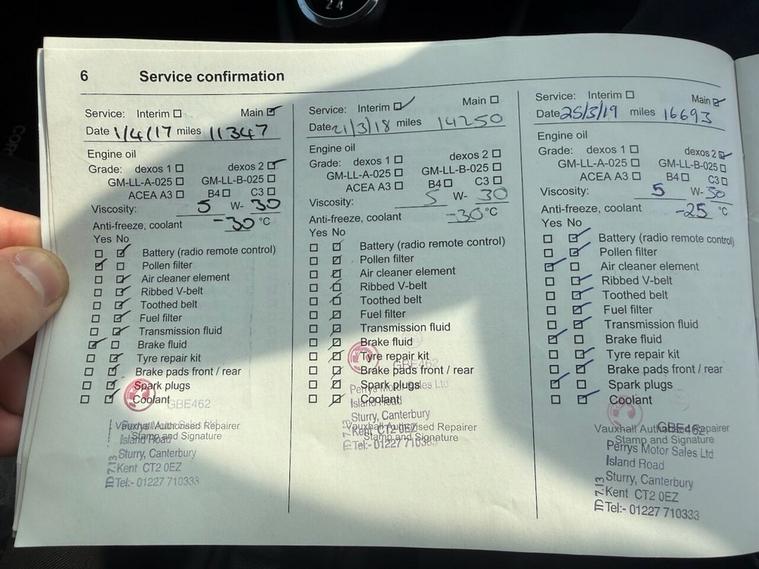 6 Service confirmation
Service: Interim ☐ Main ☑
Date 1/4/17 miles 11347
Engine oil
Grade: dexos 1 ☐ dexos 2 ☑
GM-LL-A-025 ☐ GM-LL-B-025 ☐
ACEA A3 ☐ B4 ☐ C3 ☐
Viscosity: 5 W- 30
Anti-freeze, coolant -30 °C
Yes No
☐ ☑ Battery (radio remote control)
☑ ☐ Pollen filter
☐ ☑ Air cleaner element
☐ ☑ Ribbed V-belt
☐ ☑ Toothed belt
☐ ☑ Fuel filter
☐ ☑ Transmission fluid
☑ ☐ Brake fluid
☐ ☑ Tyre repair kit
☐ ☑ Brake pads front / rear
☐ ☑ Spark plugs
☐ ☑ Coolant
GBE462
Vauxhall Authorised Repairer
Stamp and Signature
Island Road
Sturry, Canterbury
Kent CT2 0EZ
Tel:- 01227 710333
ID 7.13
Service: Interim ☑ Main ☐
Date 21/3/18 miles 14250
Engine oil
Grade: dexos 1 ☐ dexos 2 ☐
GM-LL-A-025 ☐ GM-LL-B-025 ☐
ACEA A3 ☐ B4 ☐ C3 ☐
Viscosity: 5 W- 30
Anti-freeze, coolant -30 °C
Yes No
☐ ☑ Battery (radio remote control)
☐ ☑ Pollen filter
☐ ☑ Air cleaner element
☐ ☑ Ribbed V-belt
☐ ☑ Toothed belt
☐ ☑ Fuel filter
☐ ☑ Transmission fluid
☐ ☑ Brake fluid
☐ ☑ Tyre repair kit
☐ ☑ Brake pads front / rear
☐ ☑ Spark plugs
☐ ☑ Coolant
GBE462
Perrys Motor Sales Ltd
Island Road
Sturry, Canterbury
Vauxhall Authorised Repairer
Kent CT2 0EZ
Stamp and Signature
Tel:- 01227 710333
Service: Interim ☐ Main ☑
Date 25/3/19 miles 16693
Engine oil
Grade: dexos 1 ☐ dexos 2 ☑
GM-LL-A-025 ☐ GM-LL-B-025 ☐
ACEA A3 ☐ B4 ☐ C3 ☐
Viscosity: 5 W- 30
Anti-freeze, coolant -25 °C
Yes No
☐ ☑ Battery (radio remote control)
☐ ☑ Pollen filter
☑ ☐ Air cleaner element
☐ ☑ Ribbed V-belt
☐ ☑ Toothed belt
☐ ☑ Fuel filter
☐ ☑ Transmission fluid
☑ ☐ Brake fluid
☐ ☑ Tyre repair kit
☐ ☑ Brake pads front / rear
☑ ☐ Spark plugs
☐ ☑ Coolant
GBE462
Vauxhall Authorised Repairer
Stamp and Signature
Perrys Motor Sales Ltd
Island Road
Sturry, Canterbury
Kent CT2 0EZ
Tel:- 01227 710333
ID 7.13